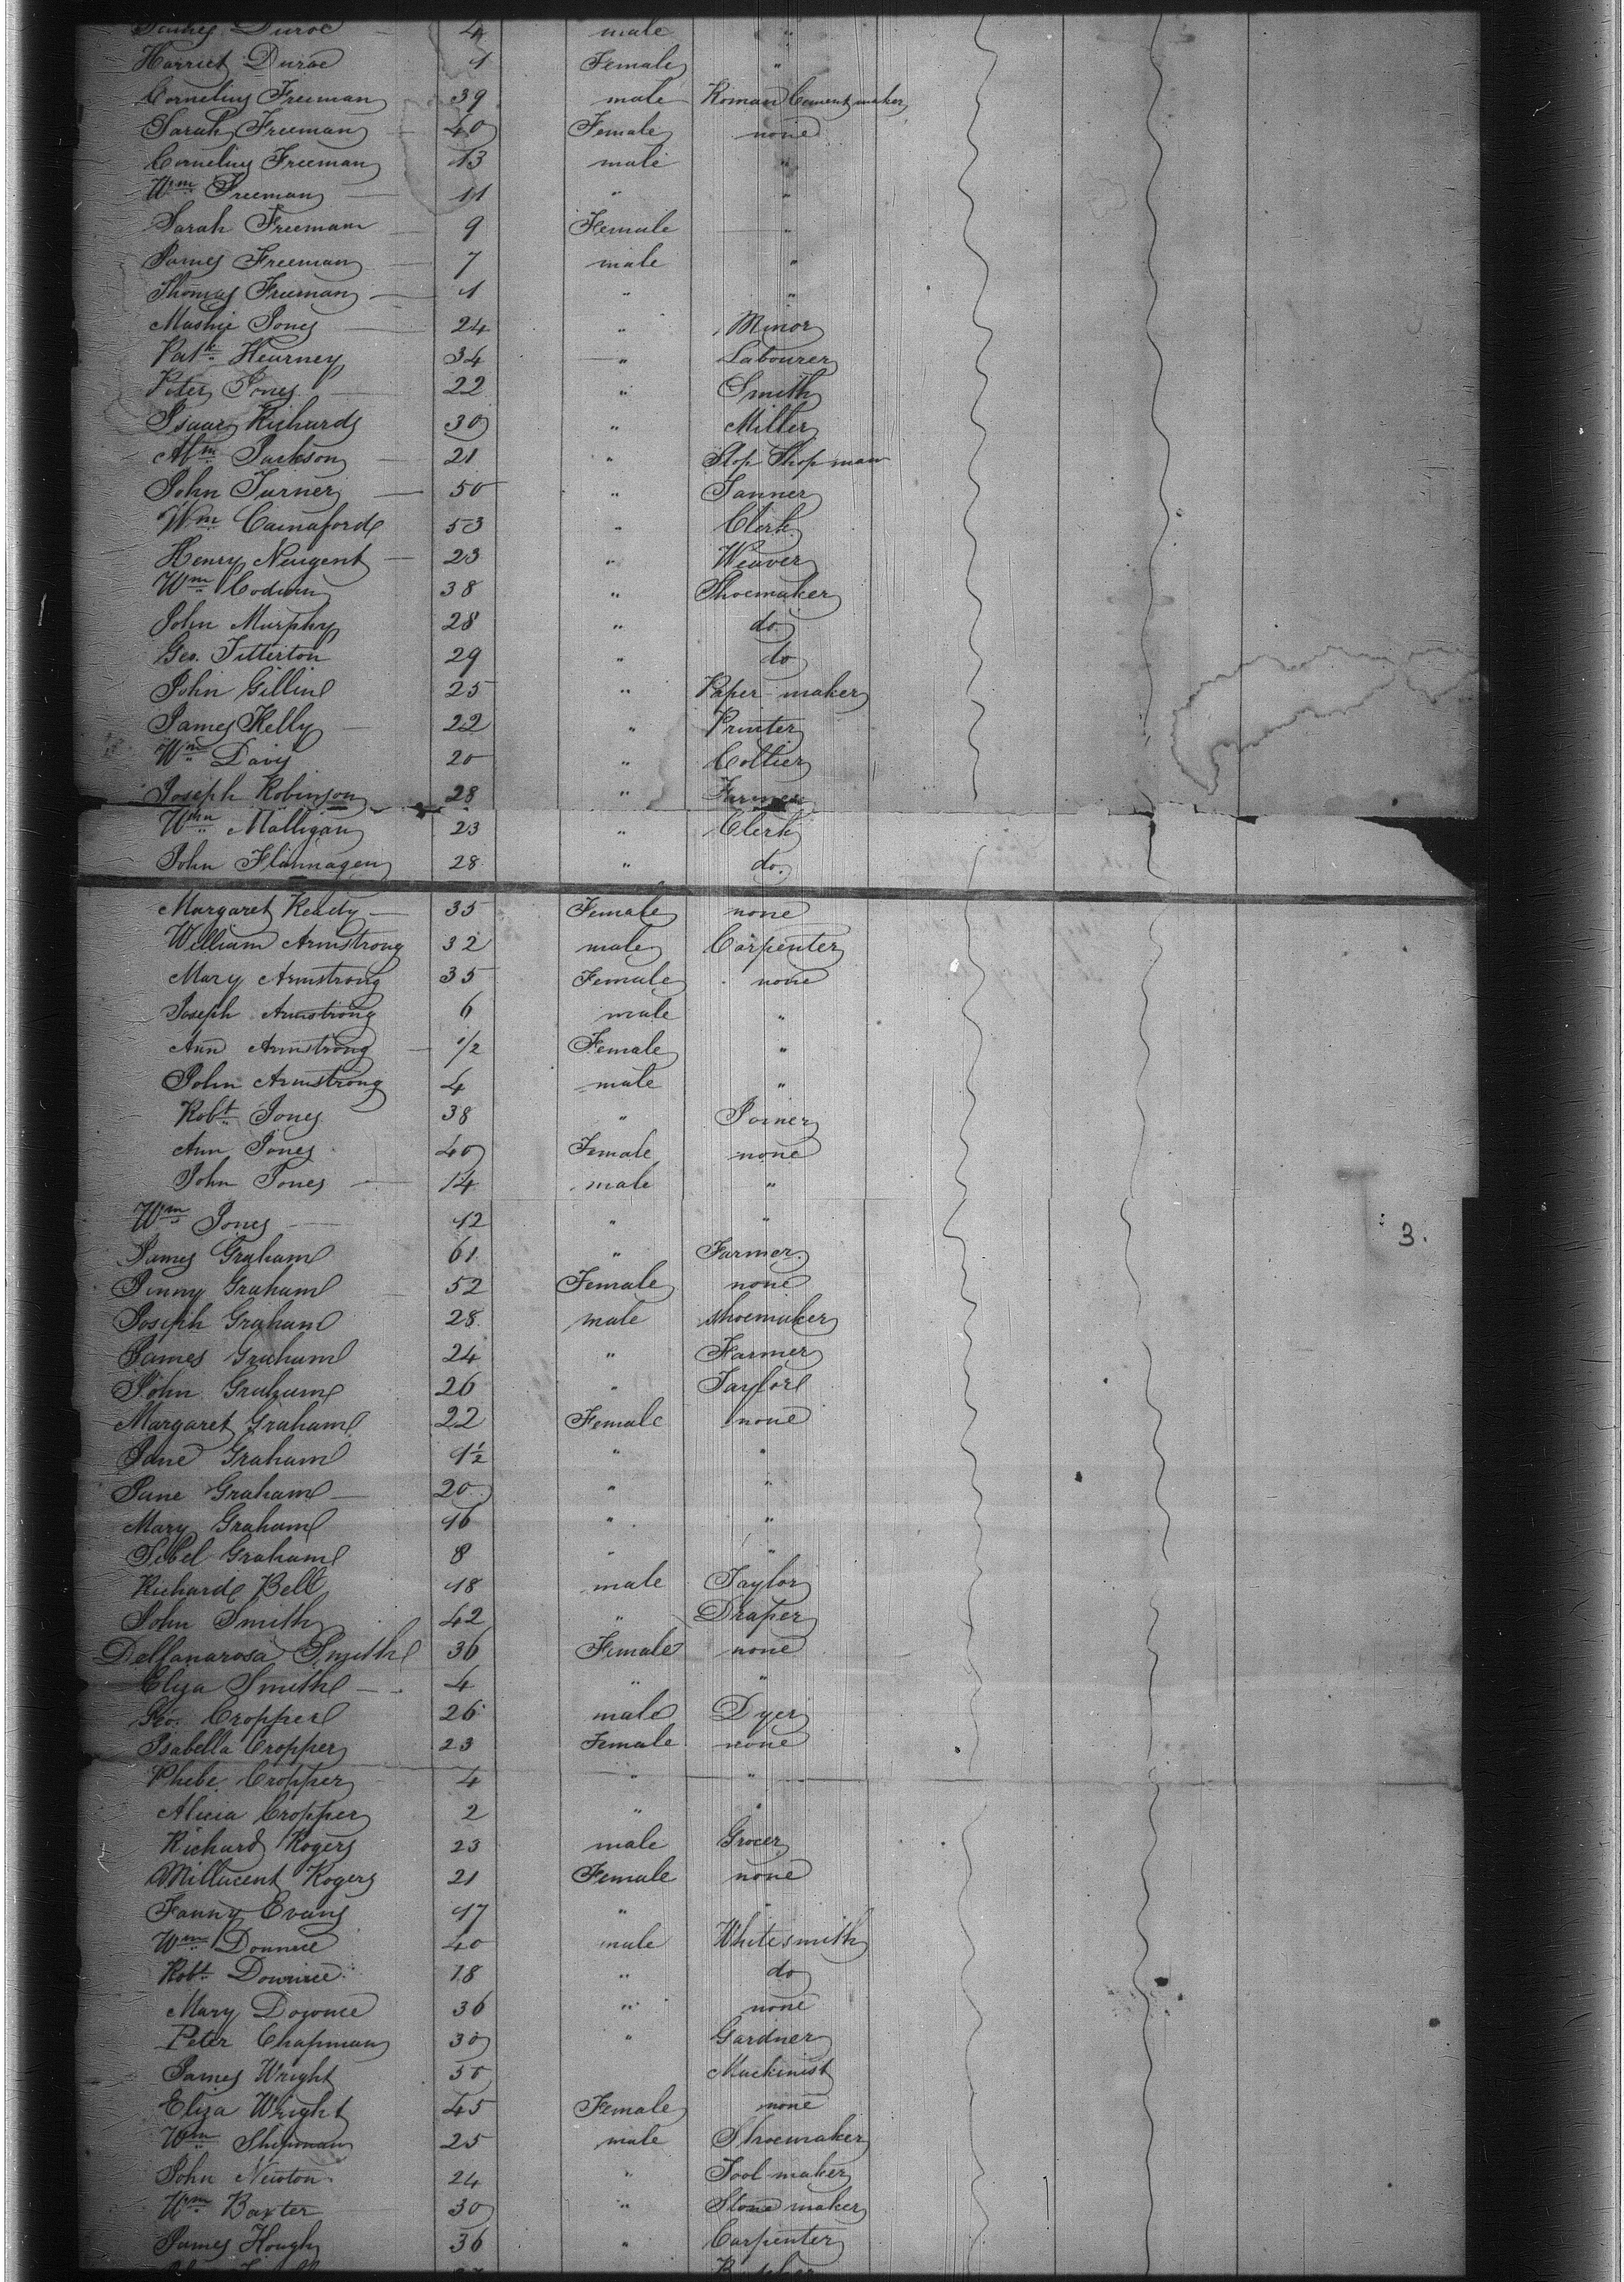 James Duroe 4 male "
Harriet Duroe 1 Female "
Cornelius Freeman 39 male Roman Cement maker
Sarah Freeman 40 Female none
Cornelius Freeman 13 male "
Wm Freeman 11 " "
Sarah Freeman 9 Female "
James Freeman 7 male "
Thomas Freeman 1 " "
Jones 24 " Minor
Patk Kearney 34 " Labourer
Peter Jones 22 " Smith
Isaac Richards 30 " Miller
Jackson 21 " Slop Shop man
John Turner 50 " Tanner
Wm 53 " Clerk
Henry Neugent 23 " Weaver
Wm Codwin 38 " Shoemaker
John Murphy 28 " do
Geo. Titterton 29 " do
John Gillin 25 " Paper maker
James Kelly 22 " Printer
Wm Davis 20 " Collier
Joseph Robinson 28 " Farmer
Wm Malligan 23 " Clerk
John Flannagen 28 " do.
Margaret Ready 35 Female none
William Armstrong 32 male Carpenter
Mary Armstrong 35 Female none
Joseph Armstrong 6 male "
Ann Armstrong 1/2 Female "
John Armstrong 4 male "
Robt Jones 38 " Joiner
Ann Jones 40 Female none
John Jones 14 male "
Wm Jones 12 " "
3.
James Graham 61 " Farmer
Jinny Graham 52 Female none
Joseph Graham 28 male shoemaker
James Graham 24 " Farmer
John Graham 26 " Taylor
Margaret Graham 22 Female none
Jane Graham 1 1/2 " "
Jane Graham 20 " "
Mary Graham 16 " "
Sibel Graham 8 " "
Richard Bell 18 male Taylor
John Smith 42 " Draper
Dellanarosa Smith 36 Female none
Eliza Smith 4 " "
Geo. Cropper 26 male Dyer
Isabella Cropper 23 Female none
Phebe Cropper 4 " "
Alicia Cropper 2 " "
Richard Rogers 23 male Grocer
Millacent Rogers 21 Female none
Fanny Evans 17 " "
Wm Downie 40 male Whitesmith
Robt Downie 18 " do
Mary Downie 36 " none
Peter Chapman 30 " Gardner
James Wright 50 Mackinist
Eliza Wright 45 Female none
Wm Shipman 25 male Shoemaker
John Newton 24 " Tool maker
Wm Baxter 30 " Stone maker
James Hough 36 " Carpenter